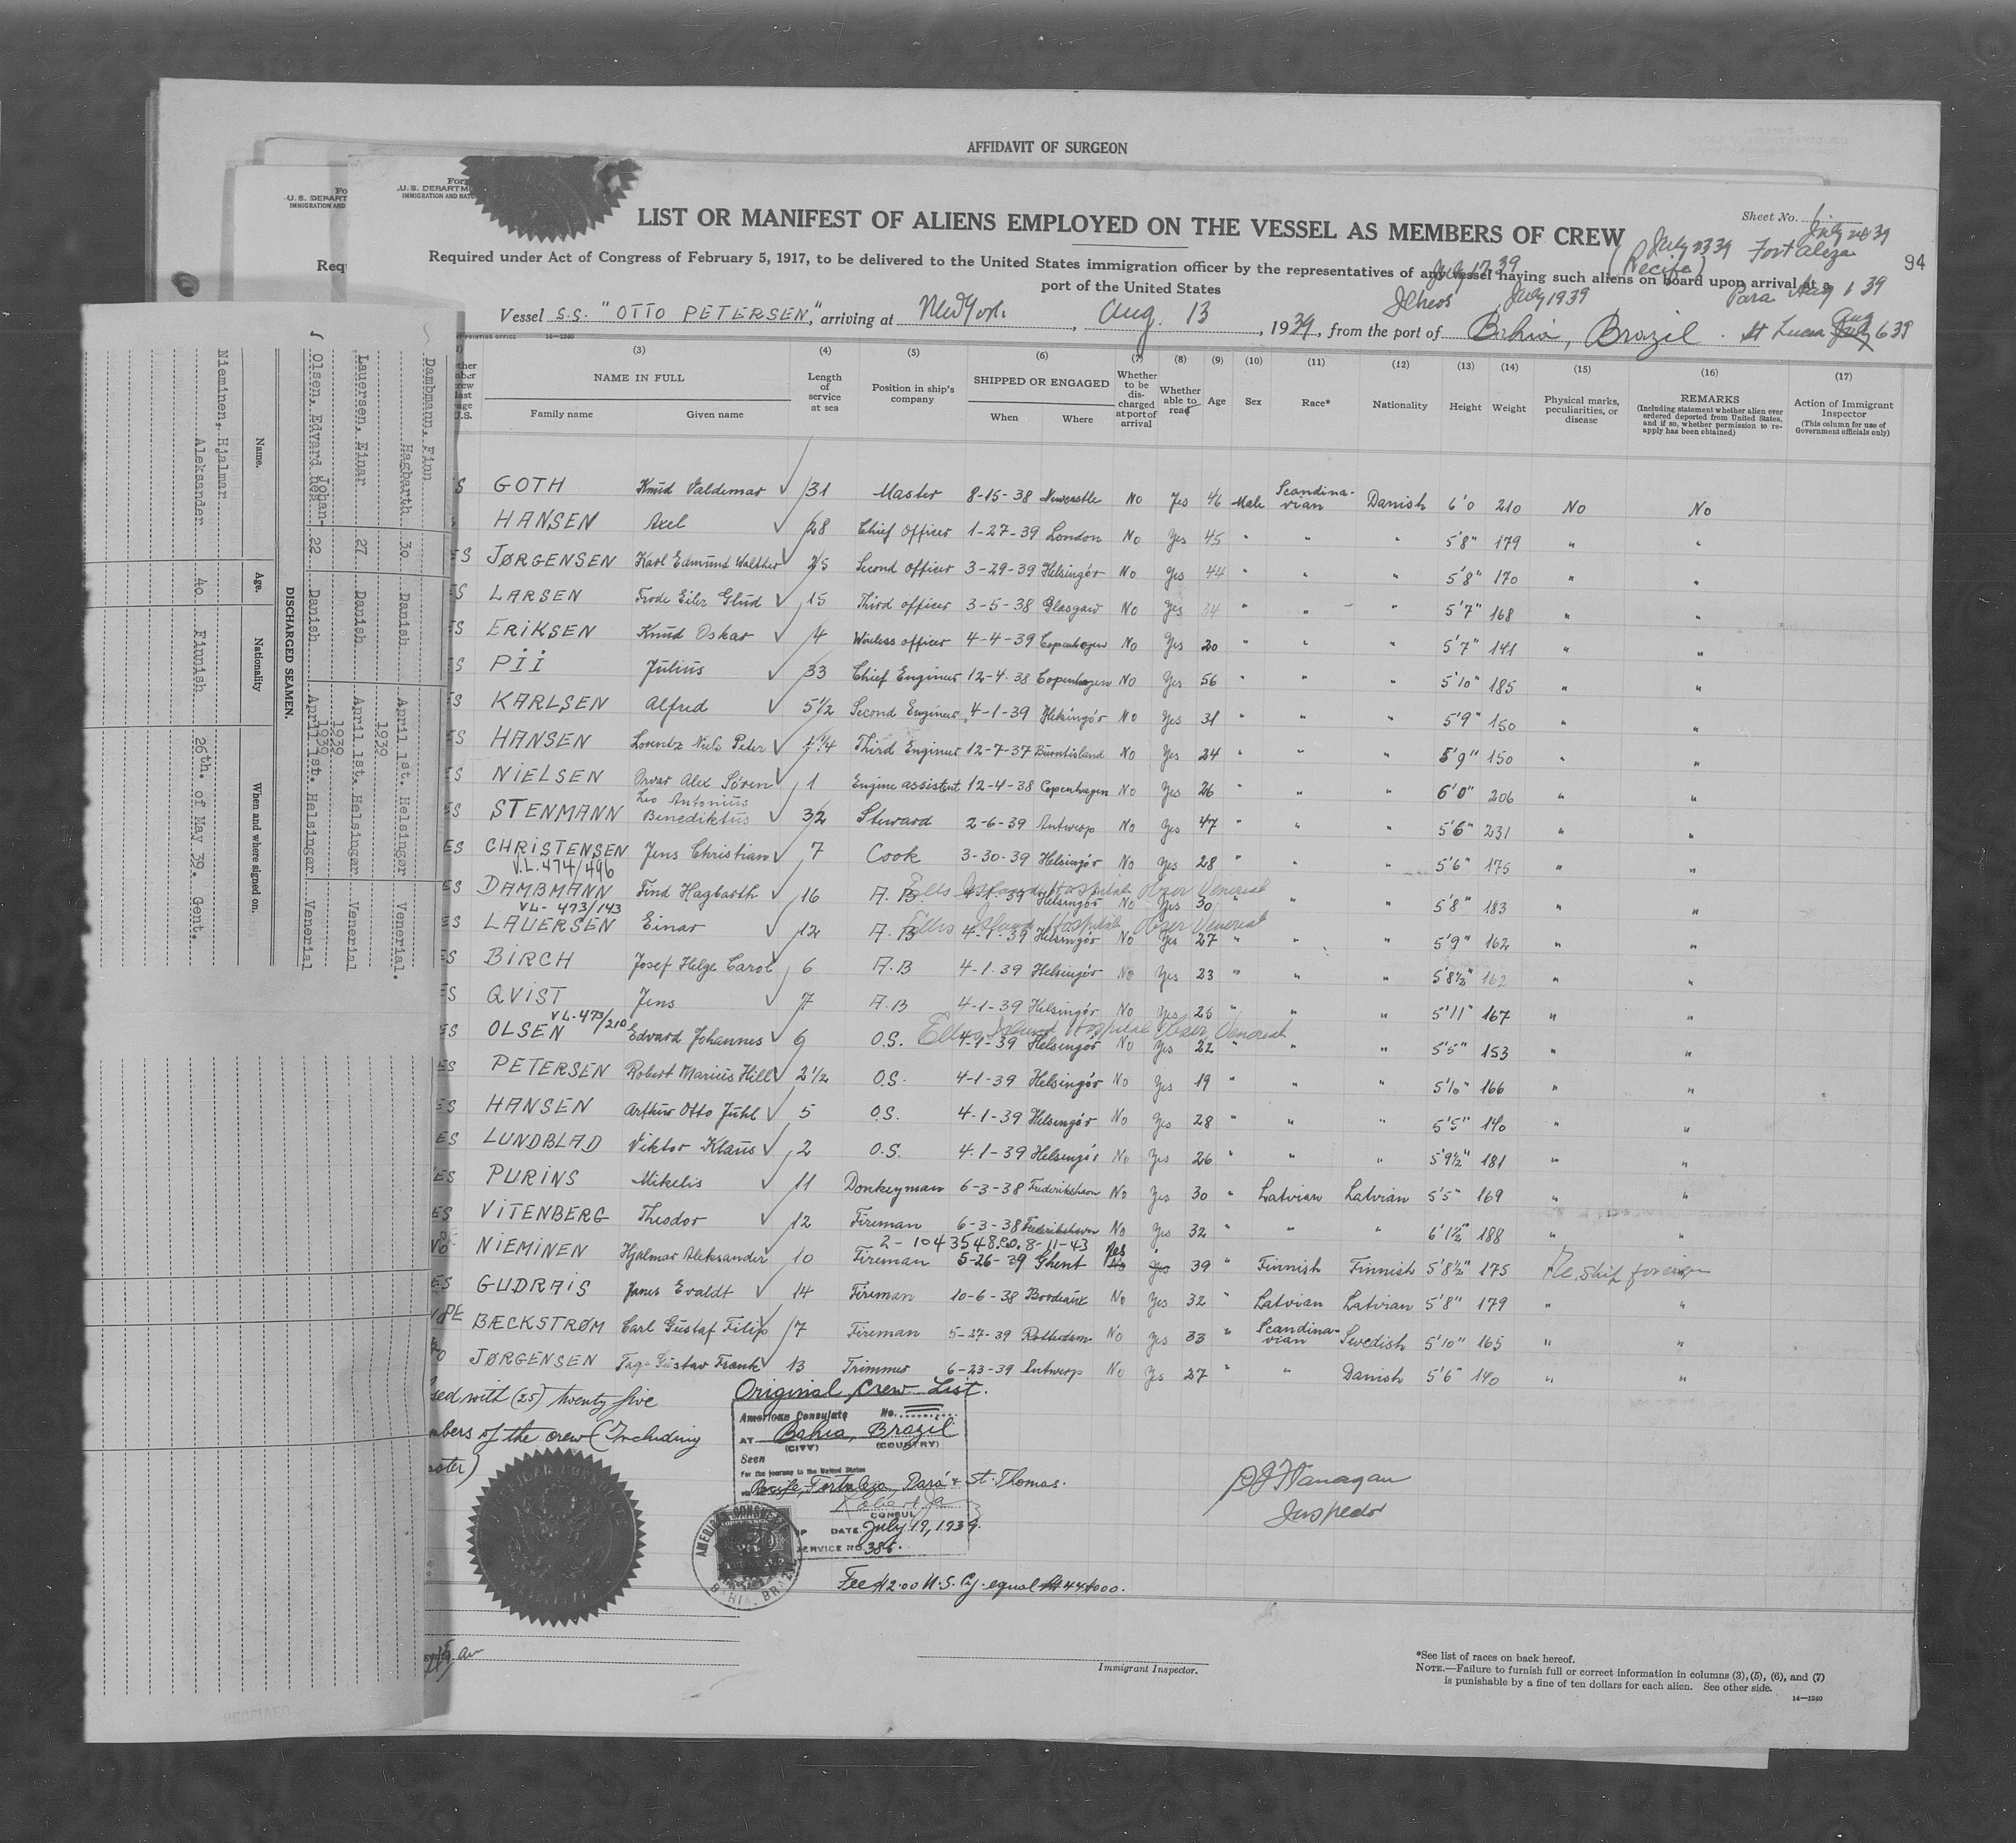 AFFIDAVIT OF SURGEON
U.S. DEPARTM
IMMIGRATION AND NATU
LIST OR MANIFEST OF ALIENS EMPLOYED ON THE VESSEL AS MEMBERS OF CREW
Sheet No. 1
July 23 39 Fortaleza July 24 39
(Recife)
94
Required under Act of Congress of February 5, 1917, to be delivered to the United States immigration officer by the representatives of any vessel having such aliens on board upon arrival at a
port of the United States
Ilheos July 17 39
July 19 39
Para Aug 1 39
Vessel S.S. "OTTO PETERSEN", arriving at New York, Aug. 13, 1939, from the port of Bahia, Brazil. St Lucia Aug 6 39
(3) (4) (5) (6) (7) (8) (9) (10) (11) (12) (13) (14) (15) (16) (17)
NAME IN FULL
Family name Given name
Length of service at sea
Position in ship's company
SHIPPED OR ENGAGED
When Where
Whether to be discharged at port of arrival
Whether able to read
Age Sex Race* Nationality Height Weight
Physical marks, peculiarities, or disease
REMARKS
(Including statement whether alien ever ordered deported from United States, and if so, whether permission to reapply has been obtained)
Action of Immigrant Inspector
(This column for use of Government officials only)
GOTH Knud Valdemar 31 Master 8-15-38 Newcastle No Yes 46 Male Scandinavian Danish 6'0 210 No No
HANSEN Axel 28 Chief Officer 1-27-39 London No Yes 45 " " " 5'8" 179 " "
JØRGENSEN Karl Edmund Walther 25 Second officer 3-29-39 Helsingör No Yes 44 " " " 5'8" 170 " "
LARSEN Frode Eiler Glud 15 Third officer 3-5-38 Glasgow No Yes 34 " " " 5'7" 168 " "
ERIKSEN Knud Oskar 4 Wireless officer 4-4-39 Copenhagen No Yes 20 " " " 5'7" 141 " "
PII Julius 33 Chief Engineer 12-4-38 Copenhagen No Yes 56 " " " 5'10" 185 " "
KARLSEN Alfred 5 1/2 Second Engineer 4-1-39 Helsingör No Yes 31 " " " 5'9" 150 " "
HANSEN Lorentz Niels Peter 1/4 Third Engineer 12-7-37 Burntisland No Yes 24 " " " 5'9" 150 " "
NIELSEN Orvar Alex Sören 1 Engine assistent 12-4-38 Copenhagen No Yes 26 " " " 6'0" 206 " "
STENMANN Leo Antonius Benediktus 32 Steward 2-6-39 Antwerp No Yes 47 " " " 5'6" 231 " "
CHRISTENSEN Jens Christian 7 Cook 3-30-39 Helsingör No Yes 28 " " " 5'6" 175 " "
V.L. 474/496
DAMBMANN Find Hagbarth 16 A.B. 4-1-39 Helsingör No Yes 30 " " " 5'8" 183 " "
Ellis Island Hospital Obser Venereal
VL- 473/143
LAUERSEN Einar 12 A.B 4-1-39 Helsingör No Yes 27 " " " 5'9" 162 " "
Ellis Island Hospital Obser Venereal
BIRCH Josef Helge Carol 6 A.B 4-1-39 Helsingör No Yes 23 " 5'8½" 162 " "
QVIST Jens 7 A.B 4-1-39 Helsingör No Yes 25 " " " 5'11" 167 " "
VL-473/210
OLSEN Edvard Johannes 6 O.S. 4-1-39 Helsingör No Yes 22 " " " 5'5" 153 " "
Ellis Island Hospital Obser Venereal
PETERSEN Robert Marius Hill 2 1/2 O.S. 4-1-39 Helsingör No Yes 19 " " " 5'10" 166 " "
HANSEN Arthur Otto Juhl 5 O.S. 4-1-39 Helsingör No Yes 28 " " " 5'5" 140 " "
LUNDBLAD Viktor Klaus 2 O.S. 4-1-39 Helsingör No Yes 26 " " " 5'9½" 181 " "
PURINS Mikelis 11 Donkeyman 6-3-38 Frederikshavn No Yes 30 " Latvian Latvian 5'5" 169 " "
VITENBERG Theodor 12 Fireman 6-3-38 Frederikshavn No Yes 32 " " " 6'1½" 188 " "
2-1043548.C.O. 8-11-43
NIEMINEN Hjalmar Aleksander 10 Fireman 5-26-39 Ghent Yes Yes 39 " Finnish Finnish 5'8½" 175 Re. ship foreign
GUDRAIS Janis Evaldt 14 Fireman 10-6-38 Bordeaux No Yes 32 " Latvian Latvian 5'8" 179 " "
BÆCKSTRØM Carl Gustaf Filip 7 Fireman 5-27-39 Rotterdam No Yes 33 " Scandinavian Swedish 5'10" 165 " "
JØRGENSEN Tage Gustav Frank 13 Trimmer 6-23-39 Antwerp No Yes 27 " " Danish 5'6" 140 " "
sed with (25) twenty five
mbers of the crew (Including
aster)
Original Crew List.
American Consulate No.
AT Bahia, Brazil
(CITY) (COUNTRY)
Seen
For the journey to the United States
via Recife, Fortaleza, Pará & St. Thomas.
CONSUL
DATE July 19, 1939.
SERVICE NO. 386.
AMERICAN CONSULATE
BAHIA, BRAZIL
Fee $2.00 U.S. Cy. equal 44$000.
Flanagan
Inspector
Immigrant Inspector.
*See list of races on back hereof.
NOTE.—Failure to furnish full or correct information in columns (3), (5), (6), and (7)
is punishable by a fine of ten dollars for each alien. See other side.
14—1240
DISCHARGED SEAMEN.
Name. Age. Nationality When and where signed on.
Nieminen, Hjalmar Aleksander 40 Finnish 26th. of May 39. Gent.
Olsen, Edvard Johannes 22 Danish April 1st. Helsingør 1939 Venerial
Lauersen, Einar 27 Danish April 1st. Helsingør 1939 Venerial
Dambmann, Finn Hagbarth 30 Danish April 1st. Helsingør 1939 Venerial.